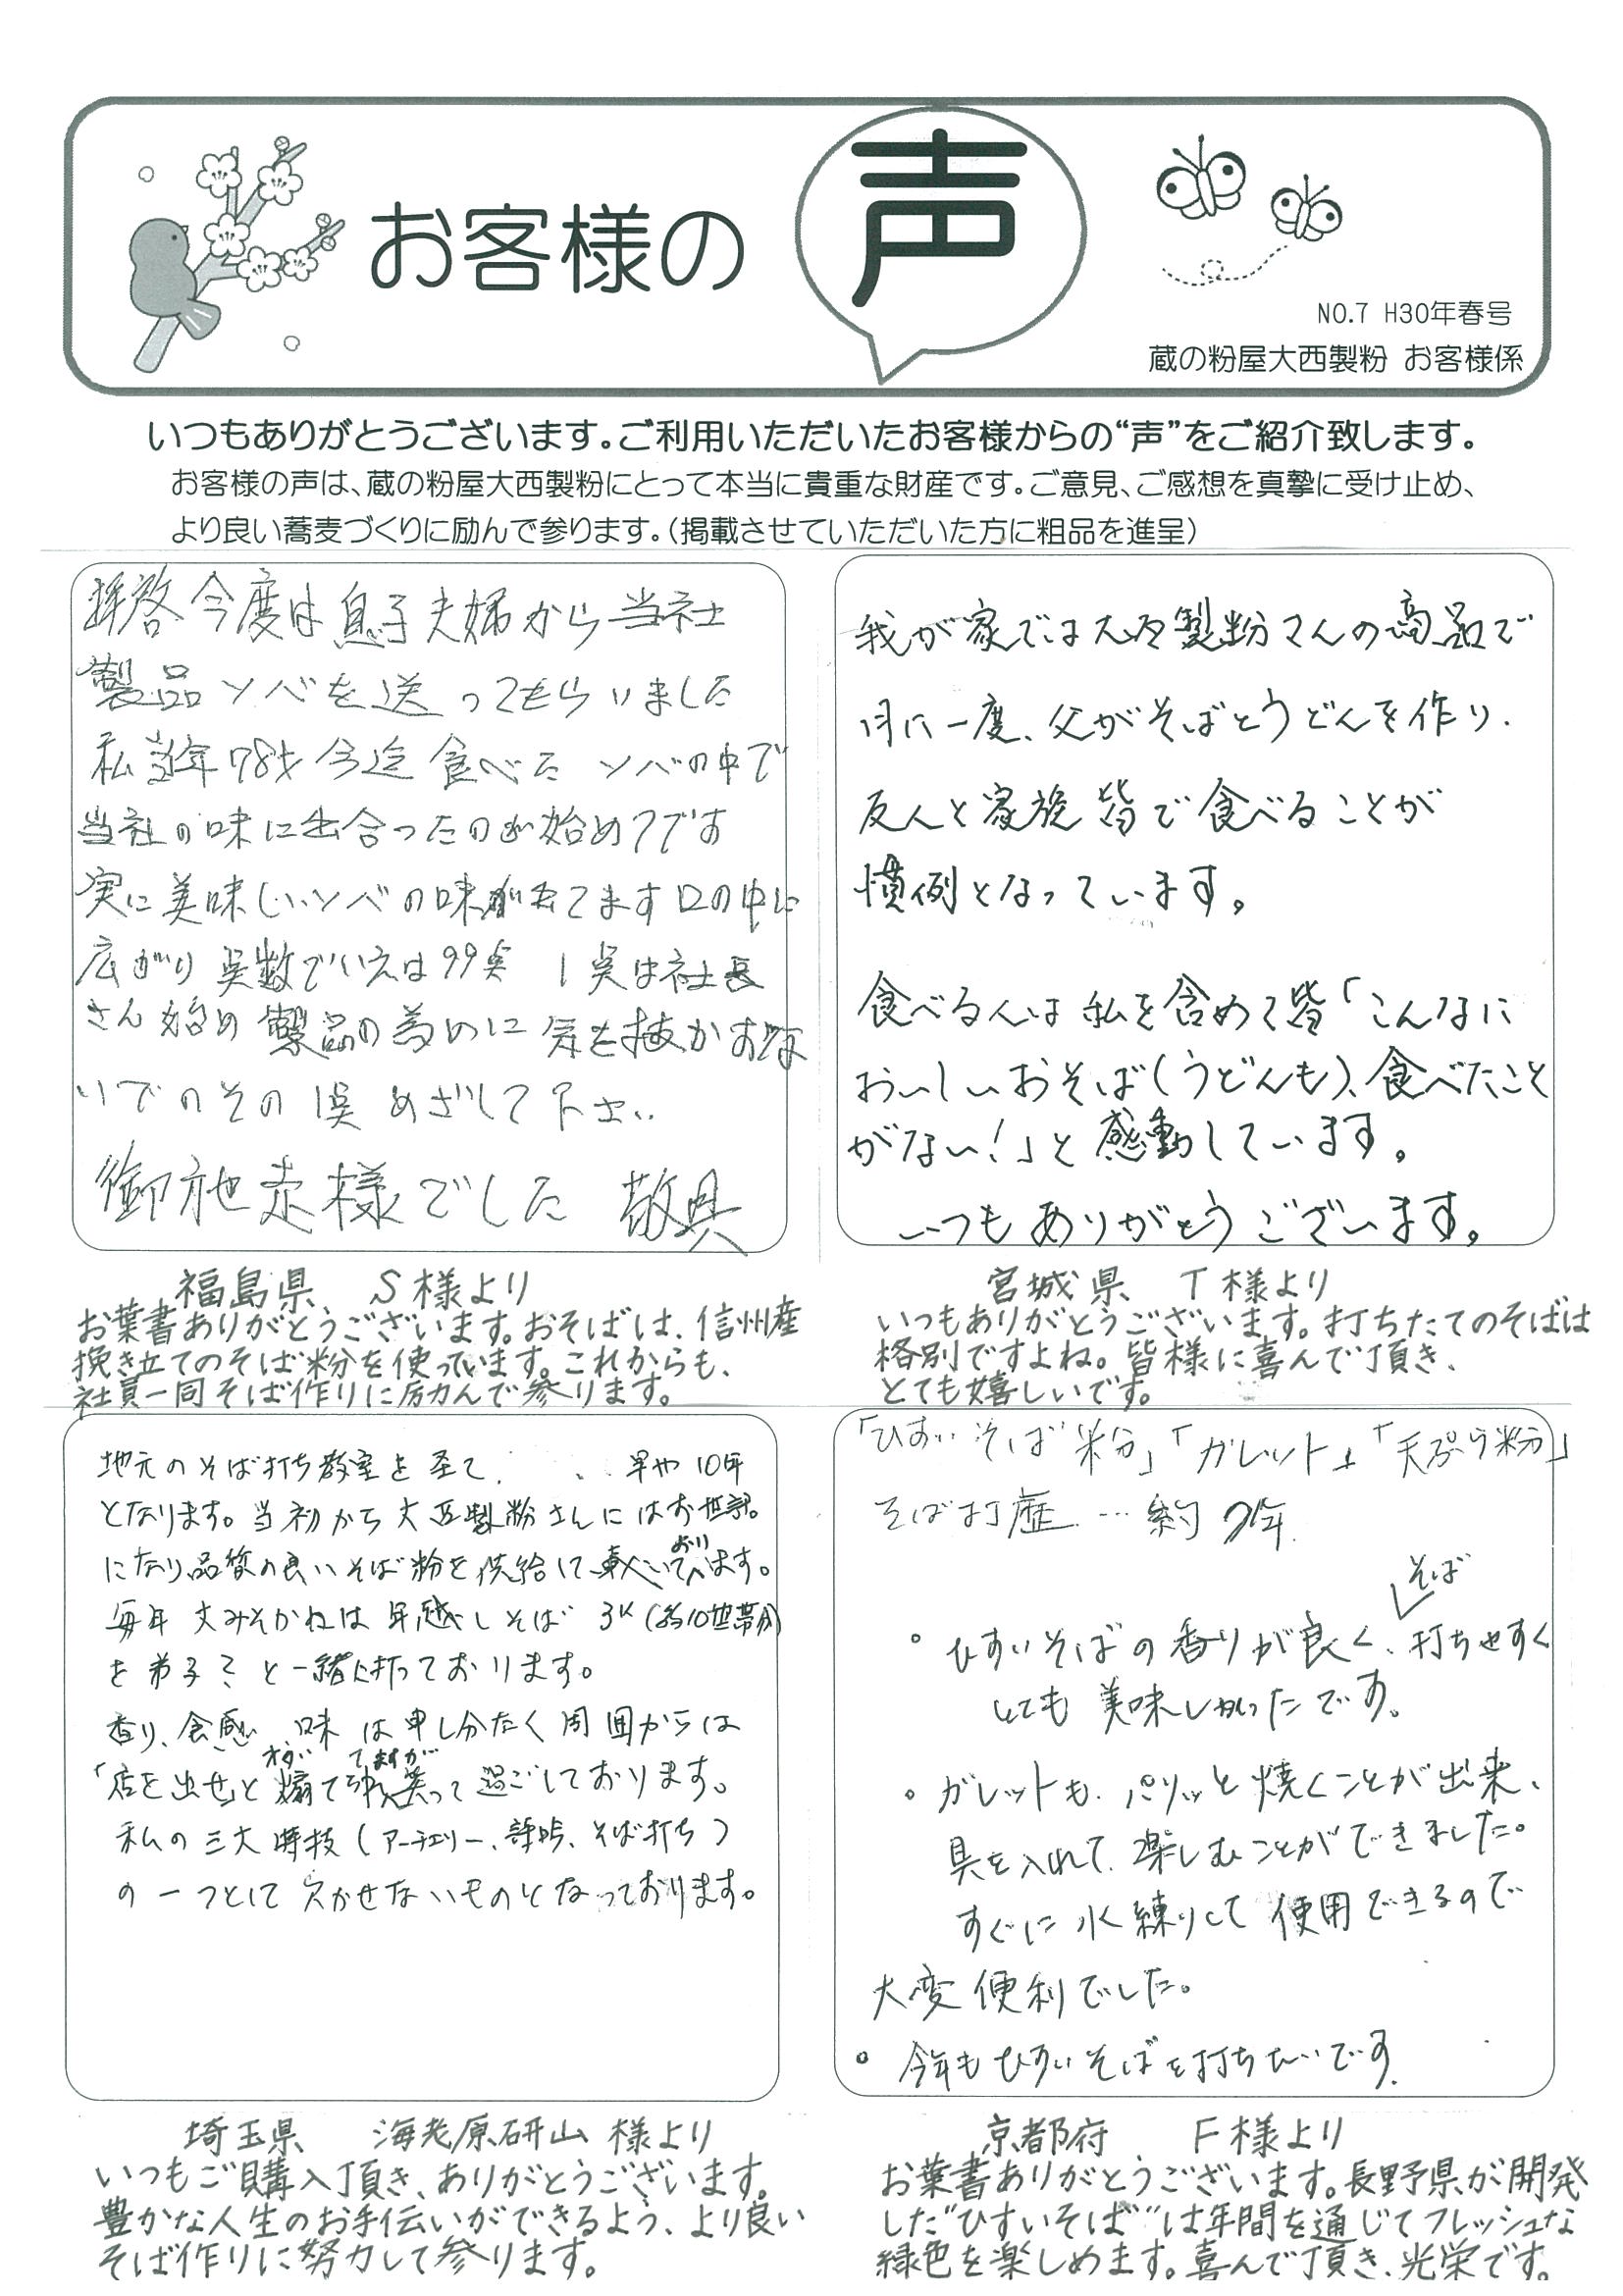 お客様の声
NO.7 H30年春号
蔵の粉屋大西製粉 お客様係
いつもありがとうございます。ご利用いただいたお客様からの“声”をご紹介致します。
お客様の声は、蔵の粉屋大西製粉にとって本当に貴重な財産です。ご意見、ご感想を真摯に受け止め、
より良い蕎麦づくりに励んで参ります。(掲載させていただいた方に粗品を進呈)
拝啓 今度は息子夫婦から当社
製品ソバを送ってもらいました
私当年78才今迄食べたソバの中で
当社の味に出合ったのが始めてです
実に美味しいソバの味が出てます口の中に
広がり 点数でいえは99点 1点は社長
さん始め製品の為めに気を抜かす事な
いでのその1点めざして下さい
御地走様でした 敬具
福島県 S様より
お葉書ありがとうございます。おそばは、信州産
挽き立てのそば粉を使っています。これからも、
社員一同そば作りに励んで参ります。
我が家では大西製粉さんの商品で
月に一度、父がそばとうどんを作り、
友人と家族皆で食べることが
慣例となっています。
食べる人は私を含めて皆「こんなに
おいしいおそば(うどんも)、食べたこと
がない!」と感動しています。
いつもありがとうございます。
宮城県 T様より
いつもありがとうございます。打ちたてのそばは
格別ですよね。皆様に喜んで頂き、
とても嬉しいです。
地元のそば打ち教室を至て、 早や10年
となります。当初から大西製粉さんにはお世話
になり品質の良いそば粉を供給して戴いており ます。
毎年大みそかねは年越しそば 3K(約10世帯分)
を弟子 と一緒に打っております。
香り、食感、味は申し分なく周囲からは
「店を出せ」と煽て られてますが 笑って過ごしております。
私の三大特技(アーチェリー、詩吟、そば打ち)
の一つとして欠かせないものとなっております。
埼玉県 海老原研山様より
いつもご購入頂き、ありがとうございます。
豊かな人生のお手伝いができるよう、より良い
そば作りに努力して参ります。
「ひすいそば粉」「ガレット」「天ぷら粉」
そば打歴…約7年
。ひすいそばの香りが良く、そば打ちやすく
とても美味しかったです。
。ガレットも、パリッと焼くことが出来、
具を入れて、楽しむことができました。
すぐに水練りして使用できるので
大変便利でした。
。今年もひすいそばを打ちたいです。
京都府 F様より
お葉書ありがとうございます。長野県が開発
した“ひすいそば”は年間を通じてフレッシュな
緑色を楽しめます。喜んで頂き、光栄です。